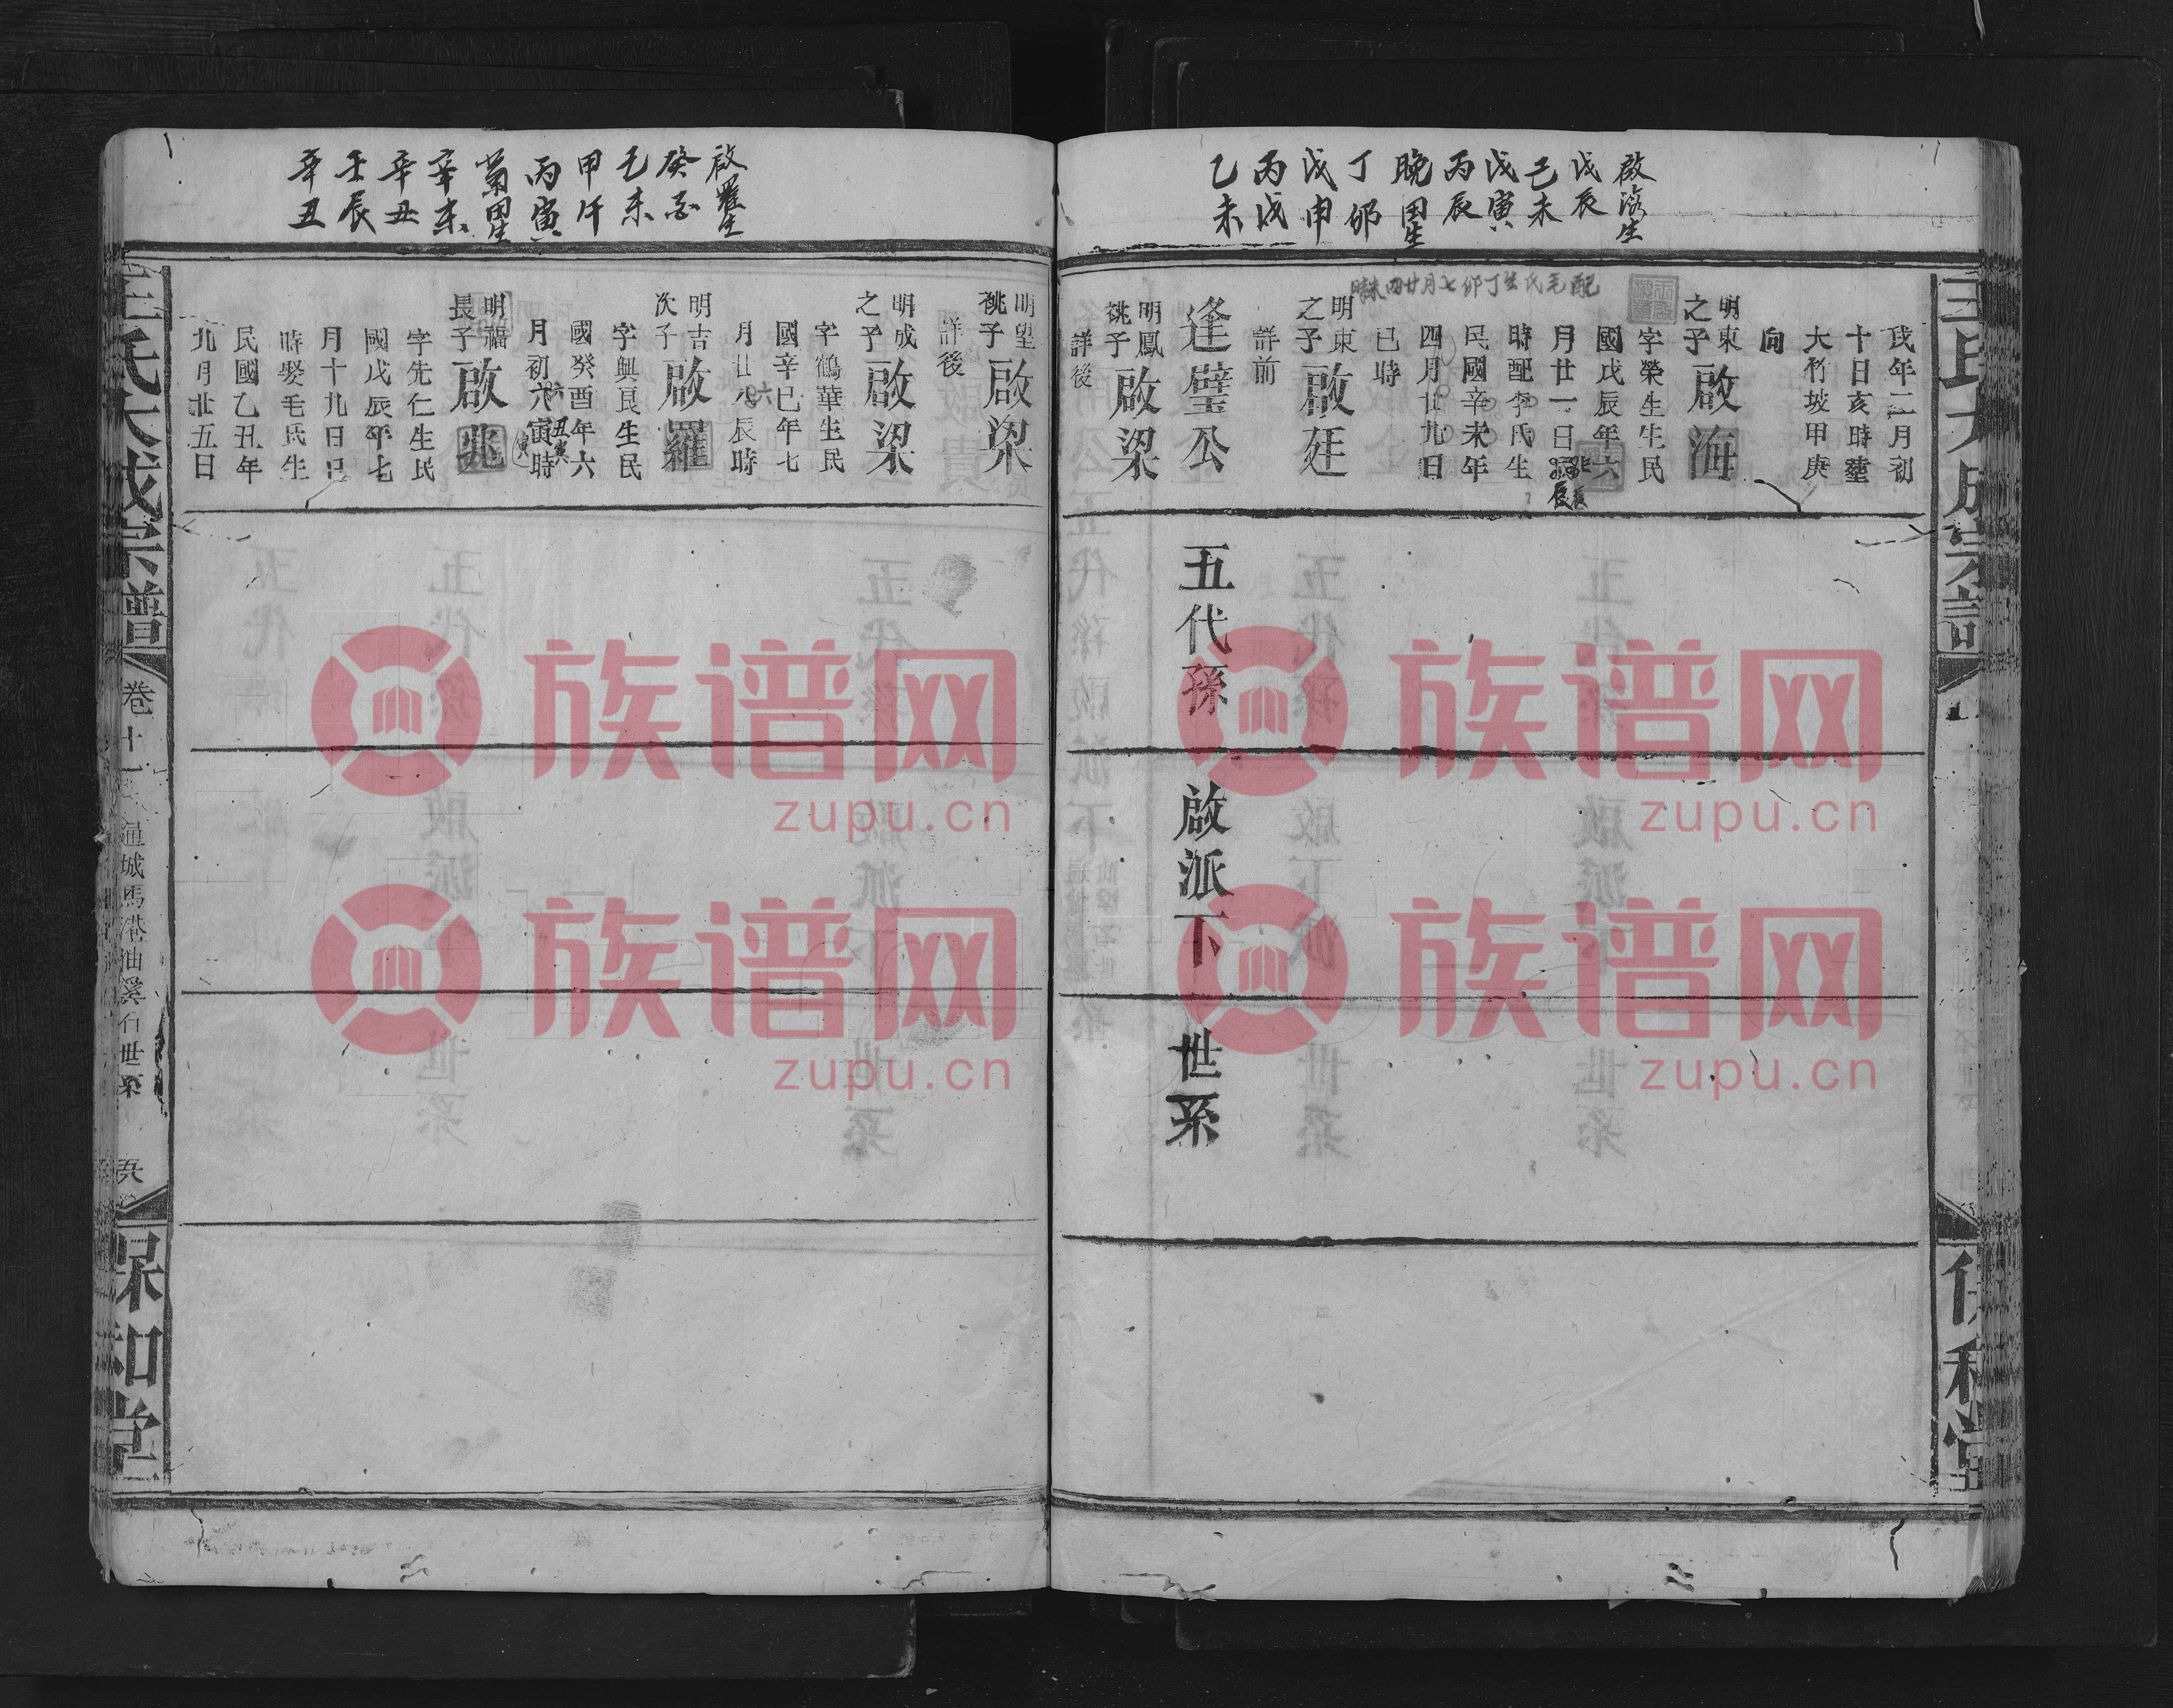 啟海生
戊辰
己未
戊寅
丙辰
晚田生
丁卯
戊申
丙戌
乙未
配毛氏生丁卯七月廿四未時
戌年二月初
十日亥時塟
大竹坡甲庚
向
明東之子 啟海
字榮生生民
國戊辰年六
月廿一日
時配李氏生
民國辛未年
四月廿九日
巳時
明東之子 啟廷
詳前
逢璧公 五代孫 啟派下 世系
明鳳祧子 啟梁
詳後
明望祧子 啟梁
詳後
明成之子 啟梁
字鶴華生民
國辛巳年七
月廿八辰時
明吉次子 啟羅
字興艮生民
國癸酉年六
月初六寅時
明福長子 啟兆
字先仁生民
國戊辰年七
月十九日巳
時娶毛氏生
民國乙丑年
九月廿五日
啟羅生
乙未
甲午
丙寅
菊田生
辛未
辛丑
壬辰
辛丑
王氏大成宗譜
卷十一
通城馬港油溪石世系
保和堂
族谱网
zupu.cn
族谱网
zupu.cn
族谱网
zupu.cn
族谱网
zupu.cn